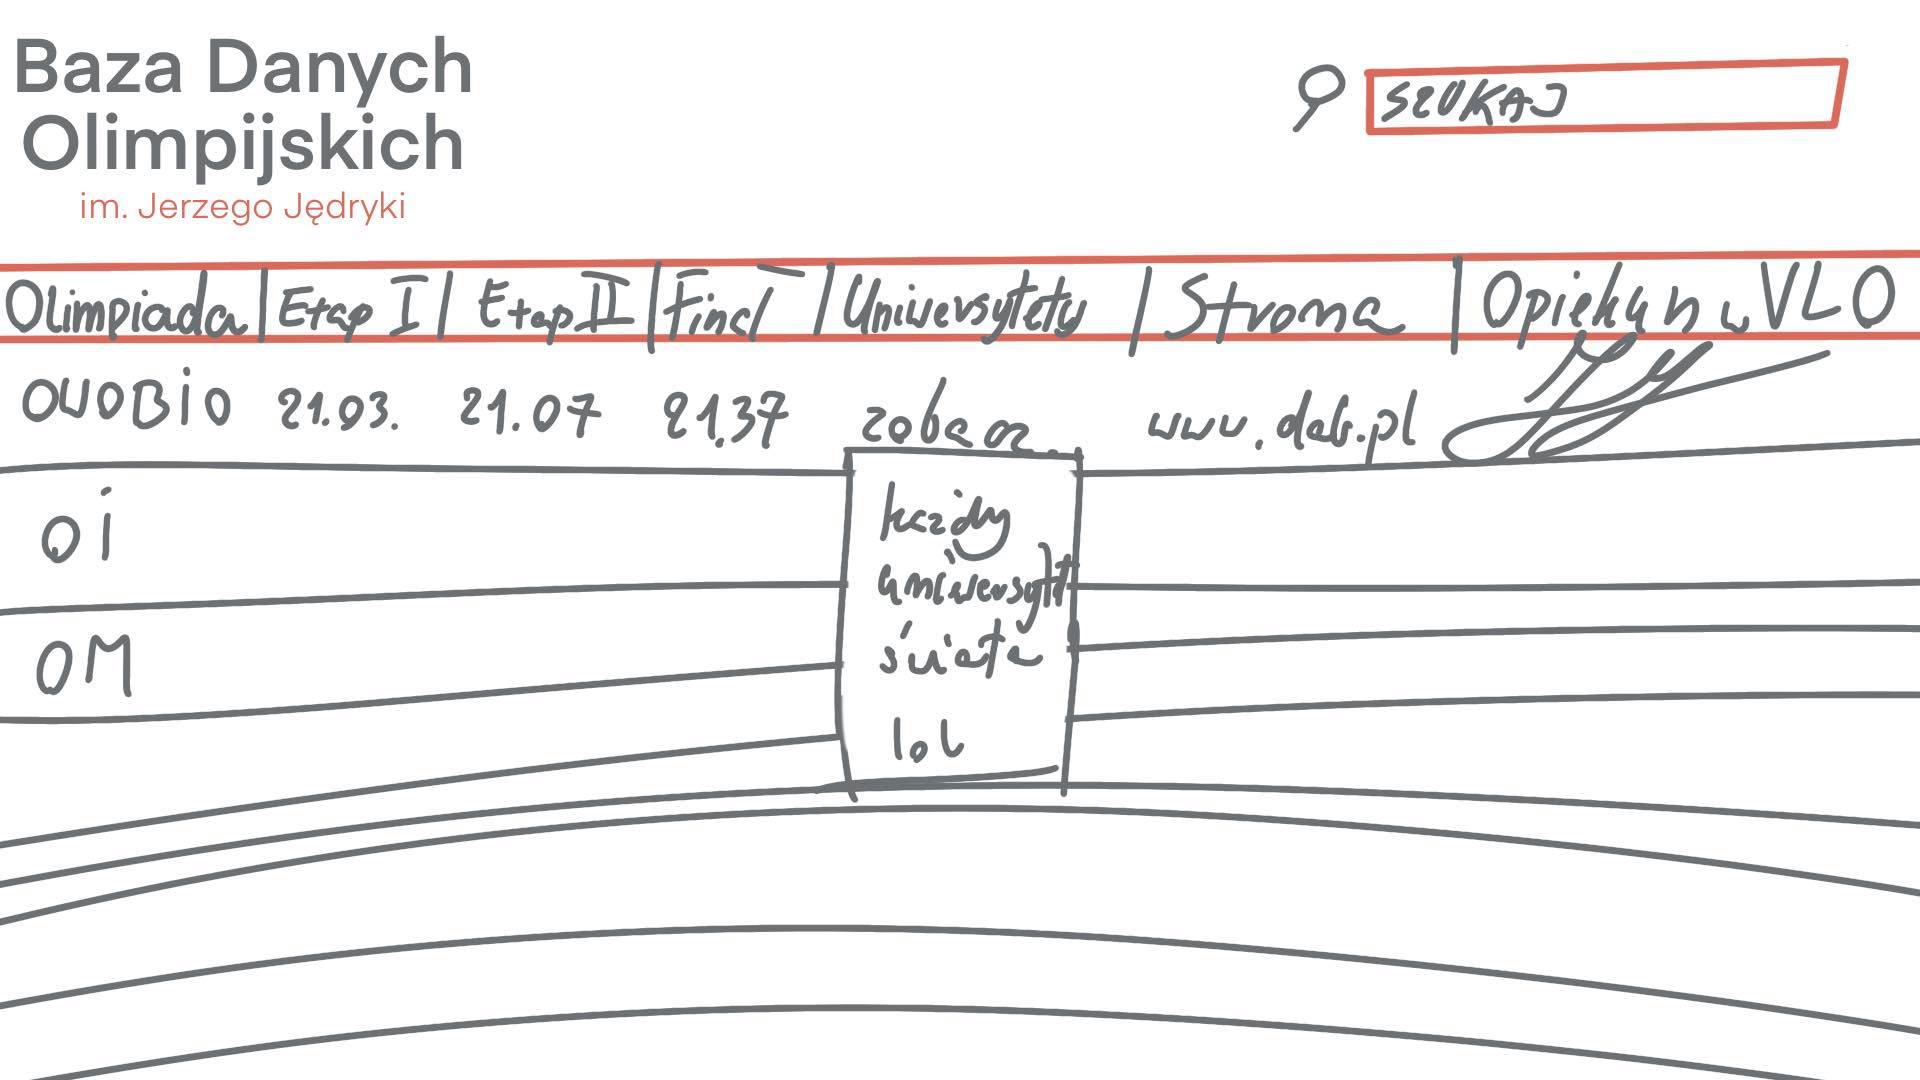 Baza Danych
Olimpijskich
im. Jerzego Jędryki
SZUKAJ
Olimpiada | Etap I | Etap II | Finał | Uniwersytety | Strona | Opiekun w VLO
OWOBiO 21.03. 21.07 21.37 zobacz www.dab.pl
każdy
uniwersytet
świata
lol
Oi
OM